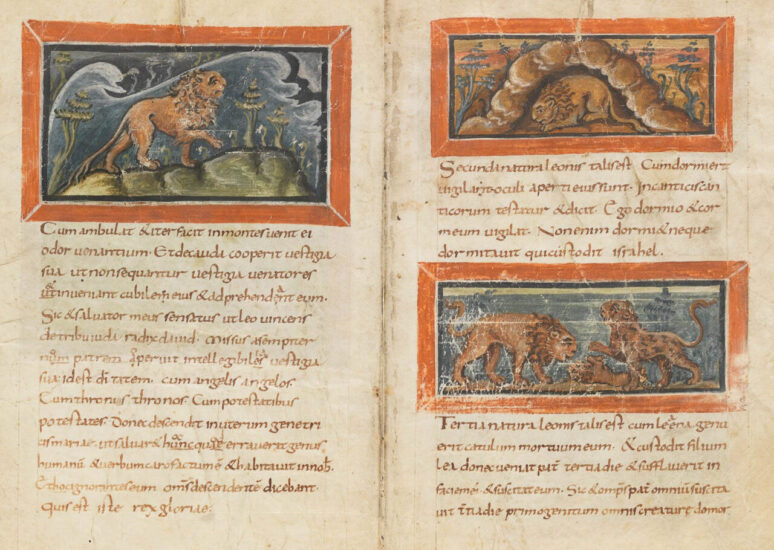 Cum ambulat & iter facit in montes uenit ei
odor uenantium. Et de cauda cooperit uestigia
sua ut non sequantur uestigia uenatores
inueniant cubile eius & adprehendant eum.
Sic & saluator meus sensatus ut leo uincens
de tribu iuda radix dauid. Missus a sempiter
patrem. operuit intellegibiles uestigia
sua id est di tatem. cum angelis angelos.
Cum thronis thronos. Cum potestatibus
potestates. Donec descendit in uterum genetri
cis mariae. ut saluar& hunc quae errauerat genus
humanu & uerbum caro factum e & habitauit in nob.
Et hoc ignorantes eum descendente dicebant.
Quis est iste rex gloriae.
Secunda natura leonis talis est. Cum dormierit
uigilant oculi aperti eius sunt. In canticis can
ticorum testatur & dicit. Ego dormio & cor
meum uigilat. Non enim dormi& neque
dormitauit qui custodit israhel.
Tertia natura leonis talis est cum leena genu
erit catulum mortuum eum. & custodit filium
lea donec ueniat pat tertia die & sufflauerit in
faciem ei & suscitat eum. Sic & omps pat omniu suscita
uit tertia die primogenitum omnis creature de mor